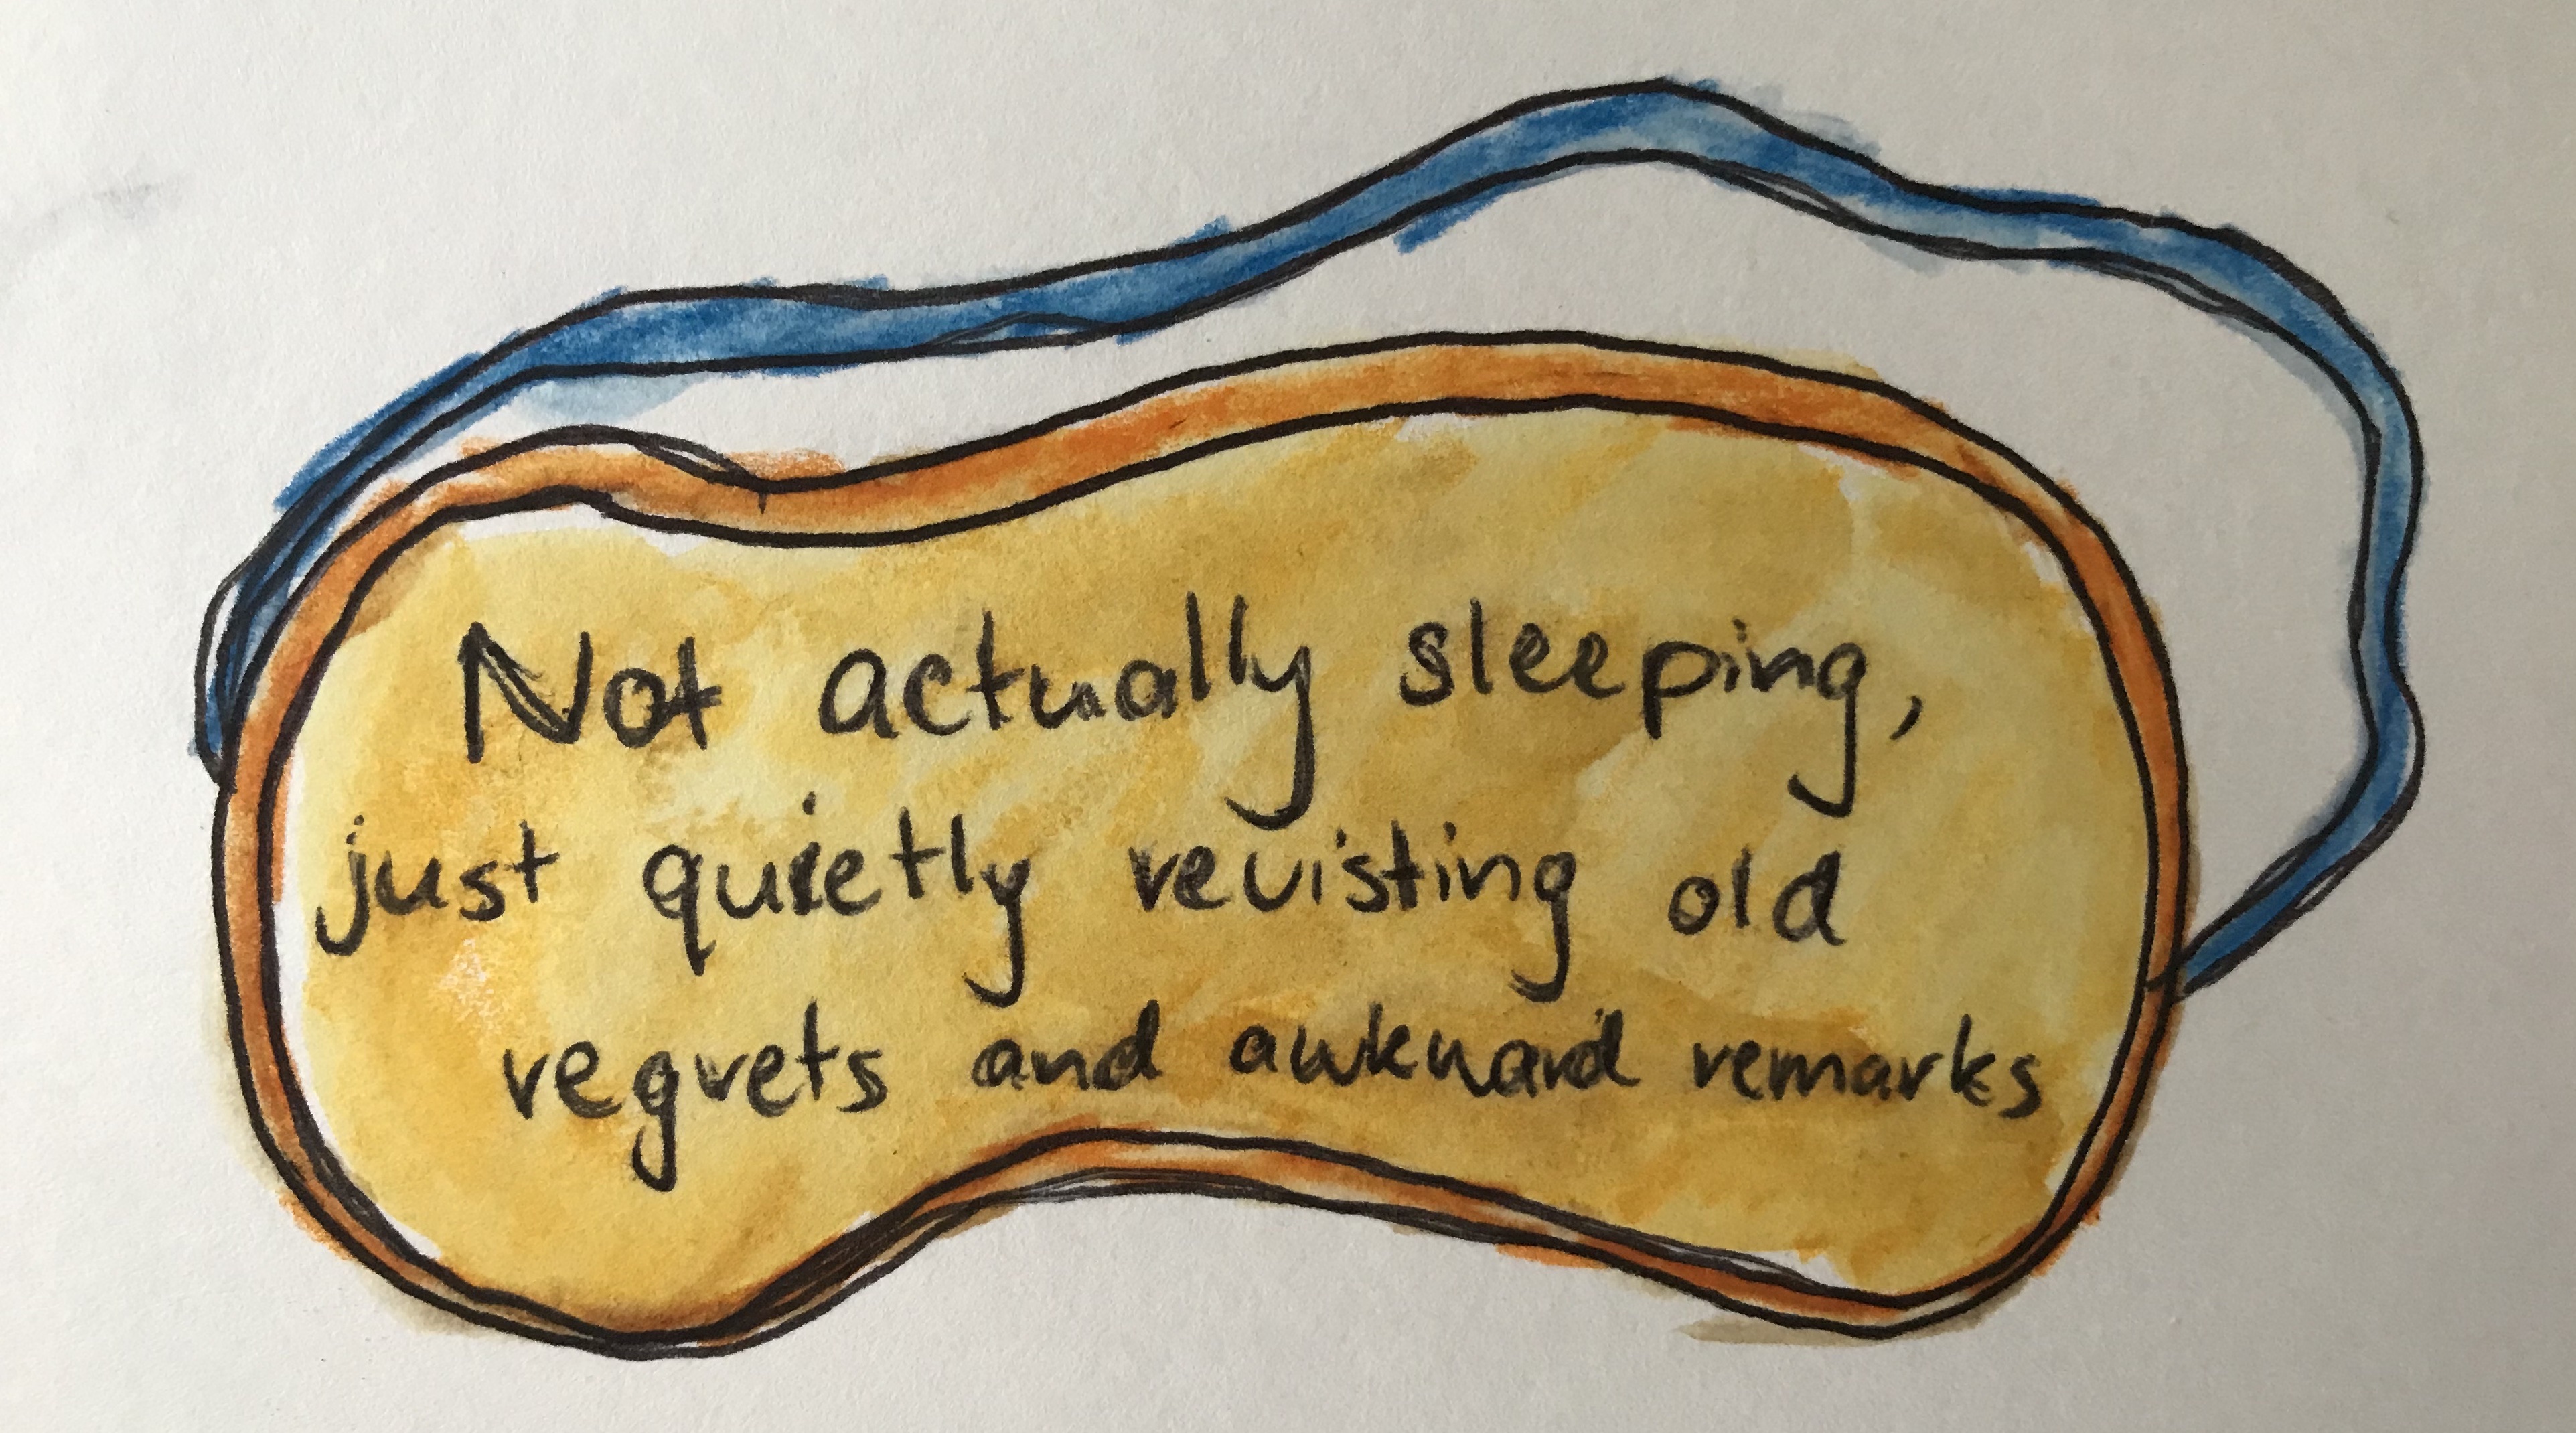 Not actually sleeping,
just quietly revisting old
regrets and awkward remarks